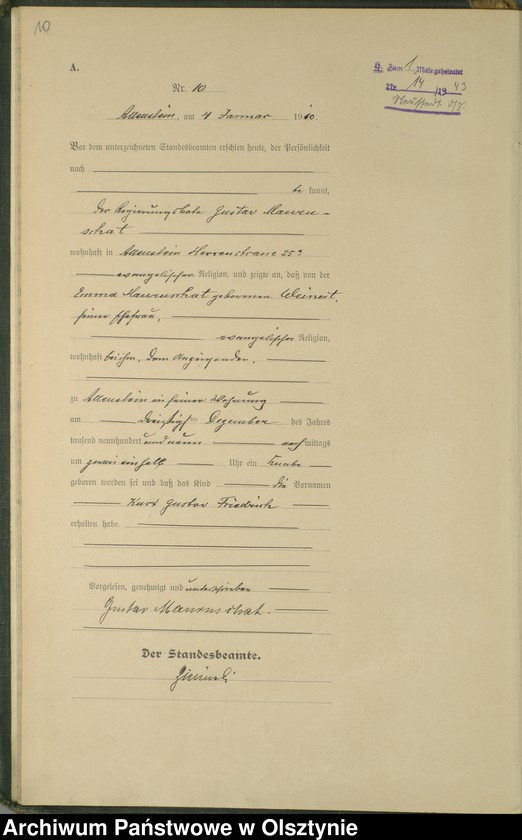 10
A.
Nr. 10
Allenstein, am 4 Januar 1910.
Zum 1. Male geheiratet
Nr. 14 /19 43
Neustadt O/S.
Vor dem unterzeichneten Standesbeamten erschien heute, der Persönlichkeit
nach
be kannt,
der Regierungsbote Gustav Mauren-
schat
wohnhaft in Allenstein Herrenstrasse
evangelischer Religion, und zeigte an, daß von der
Emma Maurenschat geborenen Weinert,
seiner Ehefrau,
evangelischer Religion,
wohnhaft bei ihm, dem Anzeigenden,
zu Allenstein in seiner Wohnung
am dreißigsten Dezember des Jahres
tausend neunhundert und neun nach mittags
um zwei einhalb Uhr ein Knabe
geboren worden sei und daß das Kind die Vornamen
Kurt Gustav Friedrich
erhalten habe.
Vorgelesen, genehmigt und unterschrieben
Gustav Maurenschat.
Der Standesbeamte.
Archiwum Państwowe w Olsztynie